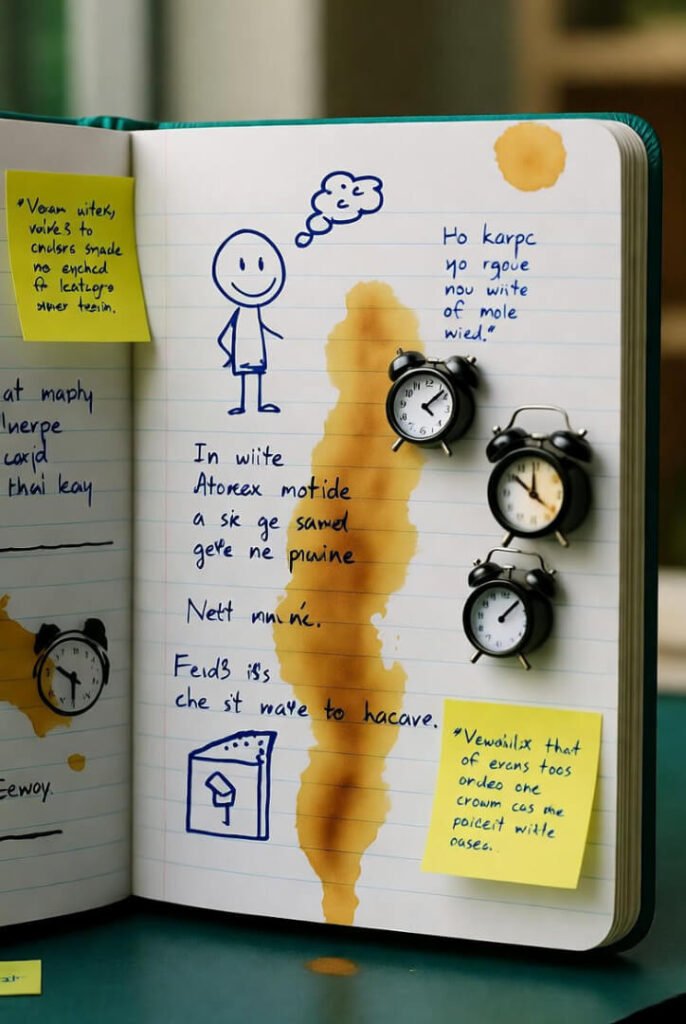 "Veram uitek,
voire3 to
cndsrs smade
ne eyched
ft leatcgro
smer tesin.
at maphy
coxjd
thai leay
Eewoy.
Ho karpc
yo rgoue
nou wiite
of mole
wied."
In wiite
Atoreex motide
a sic ge samd
ge ne pruuine
Nett
Feid3 iss
che st mate to hacave.
"Vewailix that
of evcns toos
ordeo one
crowm cas me
poiceit witle
oasea.